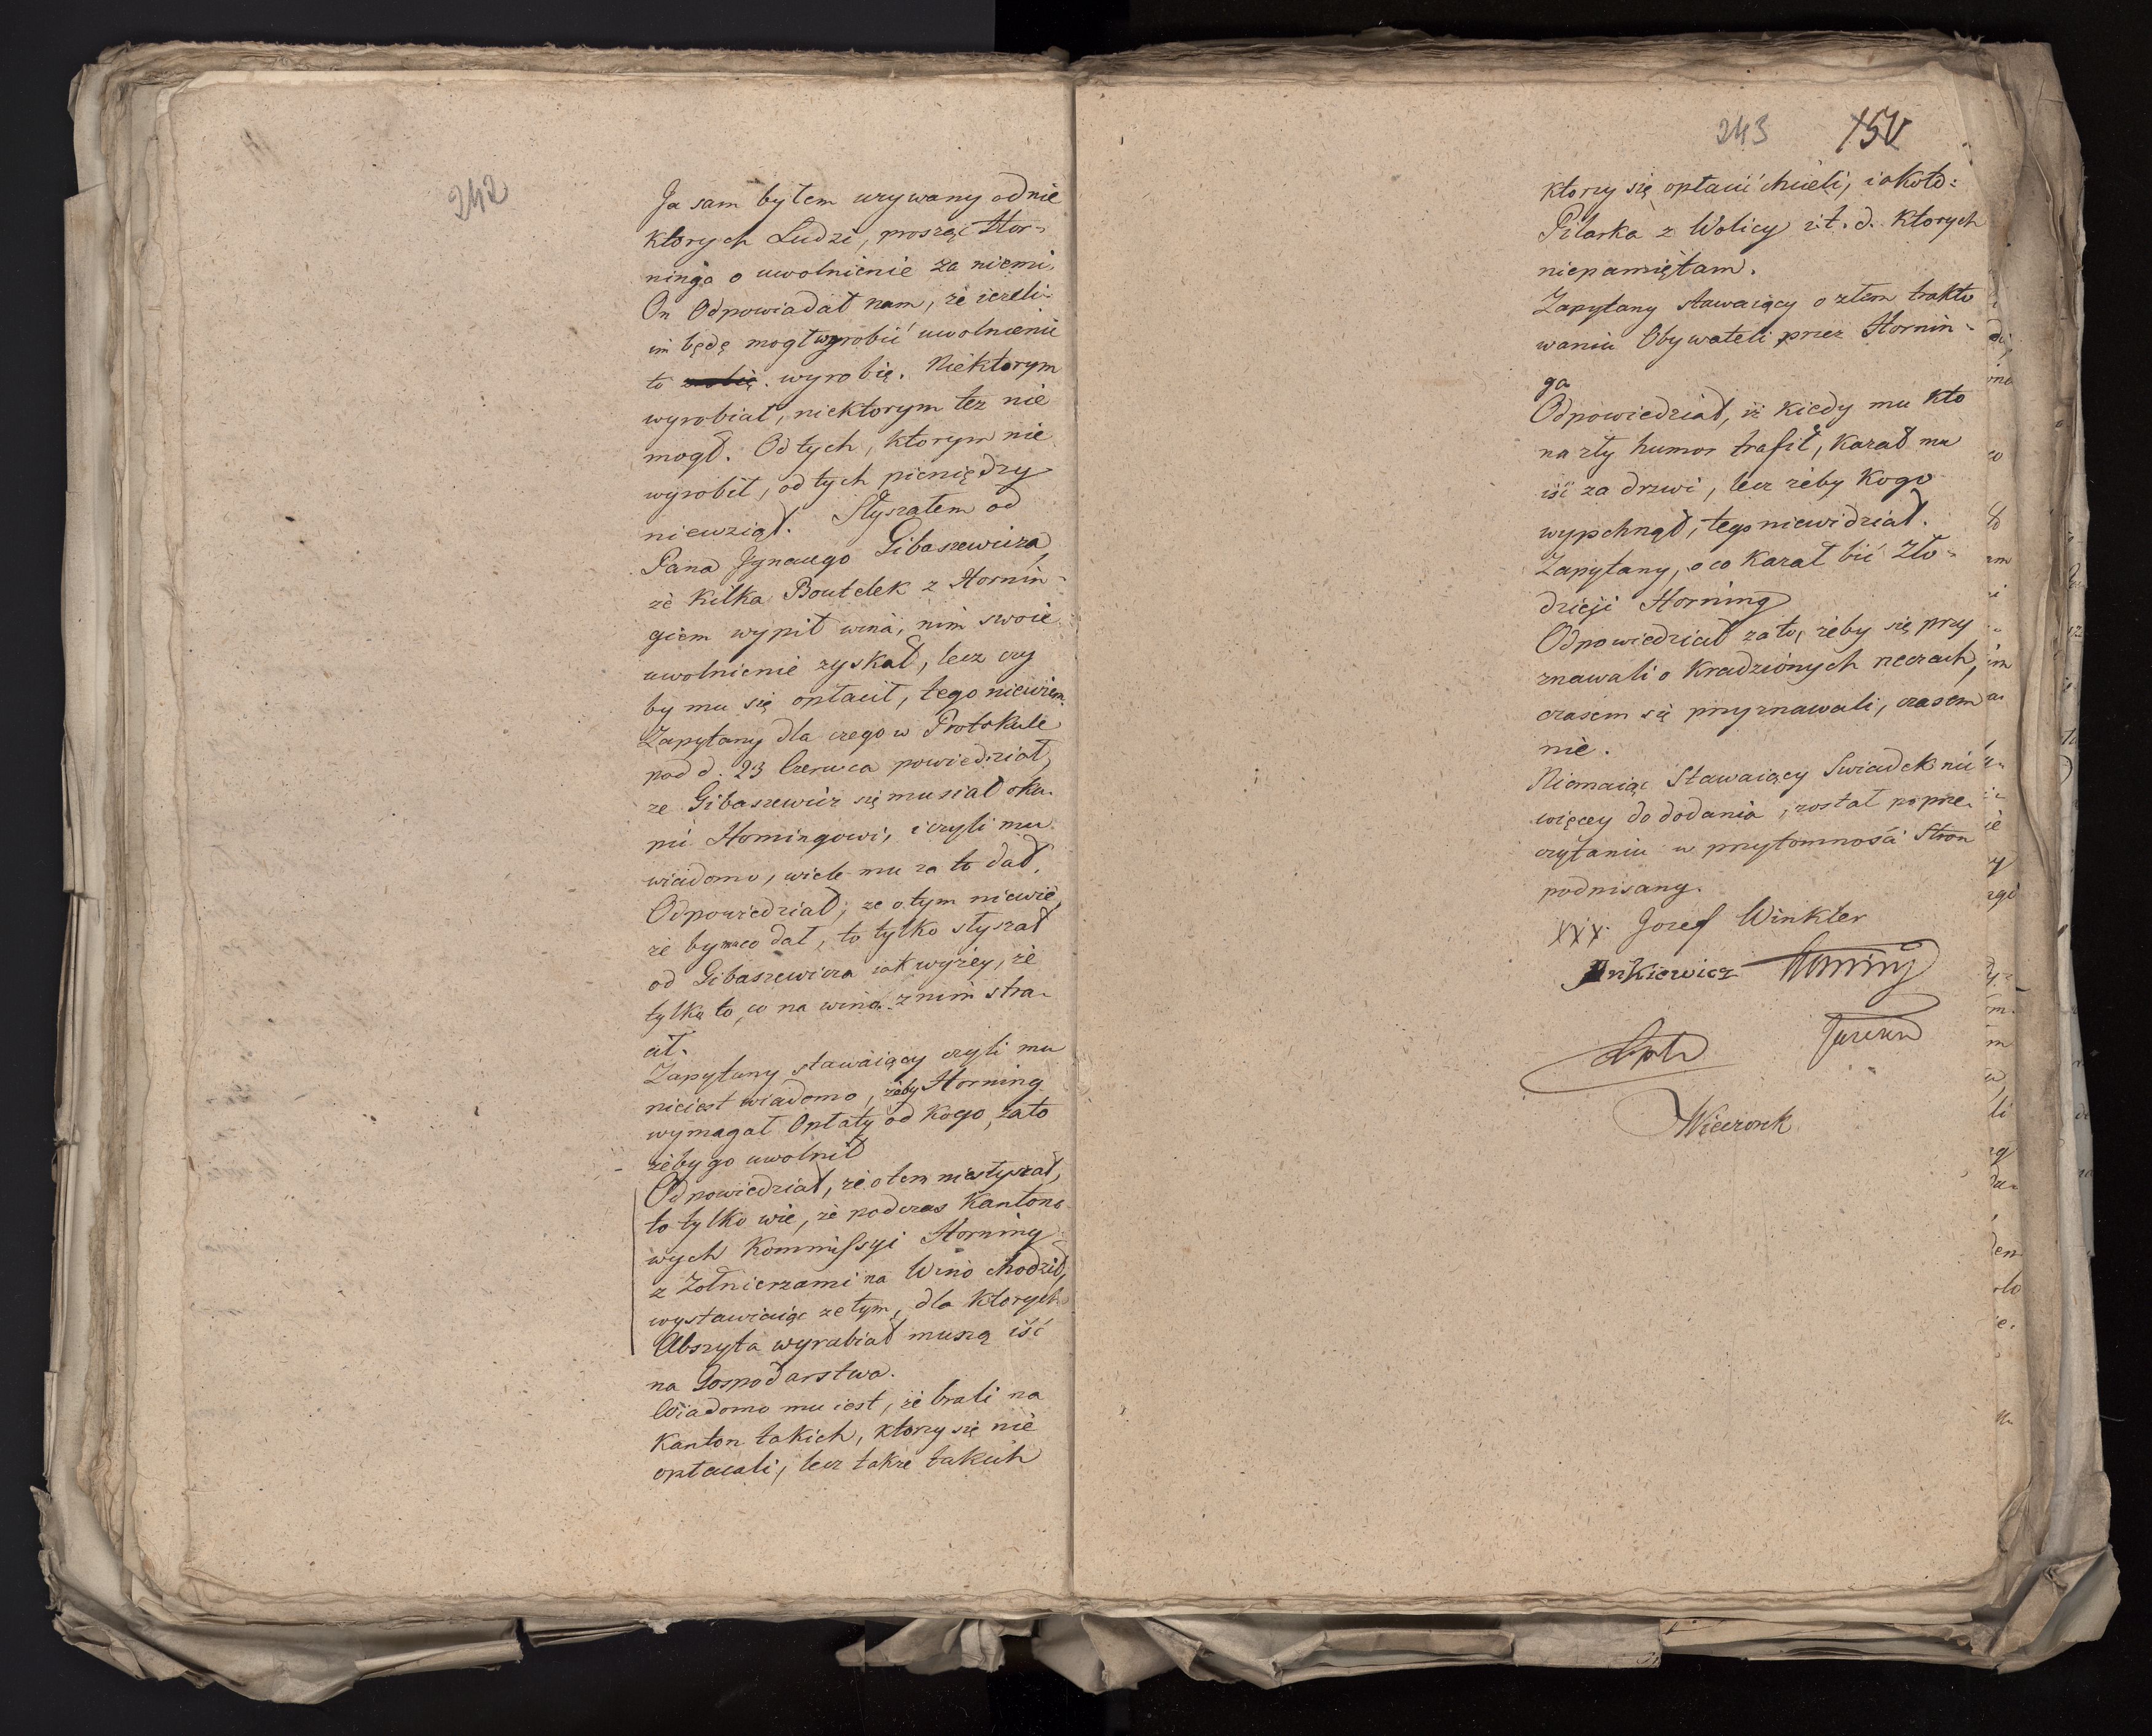 242
Ja sam byłem uzywany od nie
ktorych Ludzi, prosząc Hor-
ninga o uwolnienie za niemi,
On Odpowiadał nam, że ieżeli
im będę mogł wyrobić uwolnienie
to zrobię. wyrobię. Niektorym
wyrobiał, niektorym tez nie
mogł. Od tych, ktorym nie
wyrobił, od tych pieniędzy
niewziął. Słyszałem od
Pana Jgnacego Gibasiewicza,
że kilka Boutelek z Hornin-
giem wypił wina, nim swoie
uwolnienie zyskał, lecz czy
by mu się opłacił, tego niewiem.
Zapytany dla czego w Protokule
pod d. 23 Czerwca powiedział,
ze Gibaszewicz się musiał oku-
pić Horningowi, i czyli mu
wiadomo, wiele mu za to dał,
Odpowiedział, ze o tym niewie,
że by mu co dał, to tylko słyszał
od Gibaszewicza iak wyżey, że
tylko to, co na wino z nim stra-
cił.
Zapytany stawaiący czyli mu
nieiest wiadomo, żeby Horning
wymagał Opłaty od kogo, za to
żeby go uwolnił
Odpowiedział, że o tem niesłyszał,
to tylko wie, że podczas Kantono
wych Kommissyi Horning
z Zołnierzami na Wino chodził,
wystawiaiąc ze tym, dla ktorych
Abszyta wyrabiał muszą iść
na Gospodarstwa.
Wiadomo mu iest, że brali na
Kanton takich, ktorzy się nie
opłacali, lecz także takich
243 150
ktorzy się opłacić chcieli, iako to:
Pilarka z Wolicy i t. d. Ktorych
niepamiętam.
Zapytany stawaiący o złem trakto
waniu Obywateli przez Hornin-
ga
Odpowiedział, iż kiedy mu kto
na zły humor trafił, kazał mu
iść za drzwi, lecz żeby kogo
wypchnął, tego niewidział.
Zapytany, o co kazał bić Zło-
dzieji Horning
Odpowiedział za to, żeby się przy
znawali o kradzionych rzeczach,
czasem się przyznawali, czasem
nie.
Niemaiąc Stawaiący Swiadek nic
więcey do dodania, został po prze-
czytaniu w przytomności Stron
podpisany.
XXX Jozef Winkler
Jnkiewicz Horning
Wieczorek